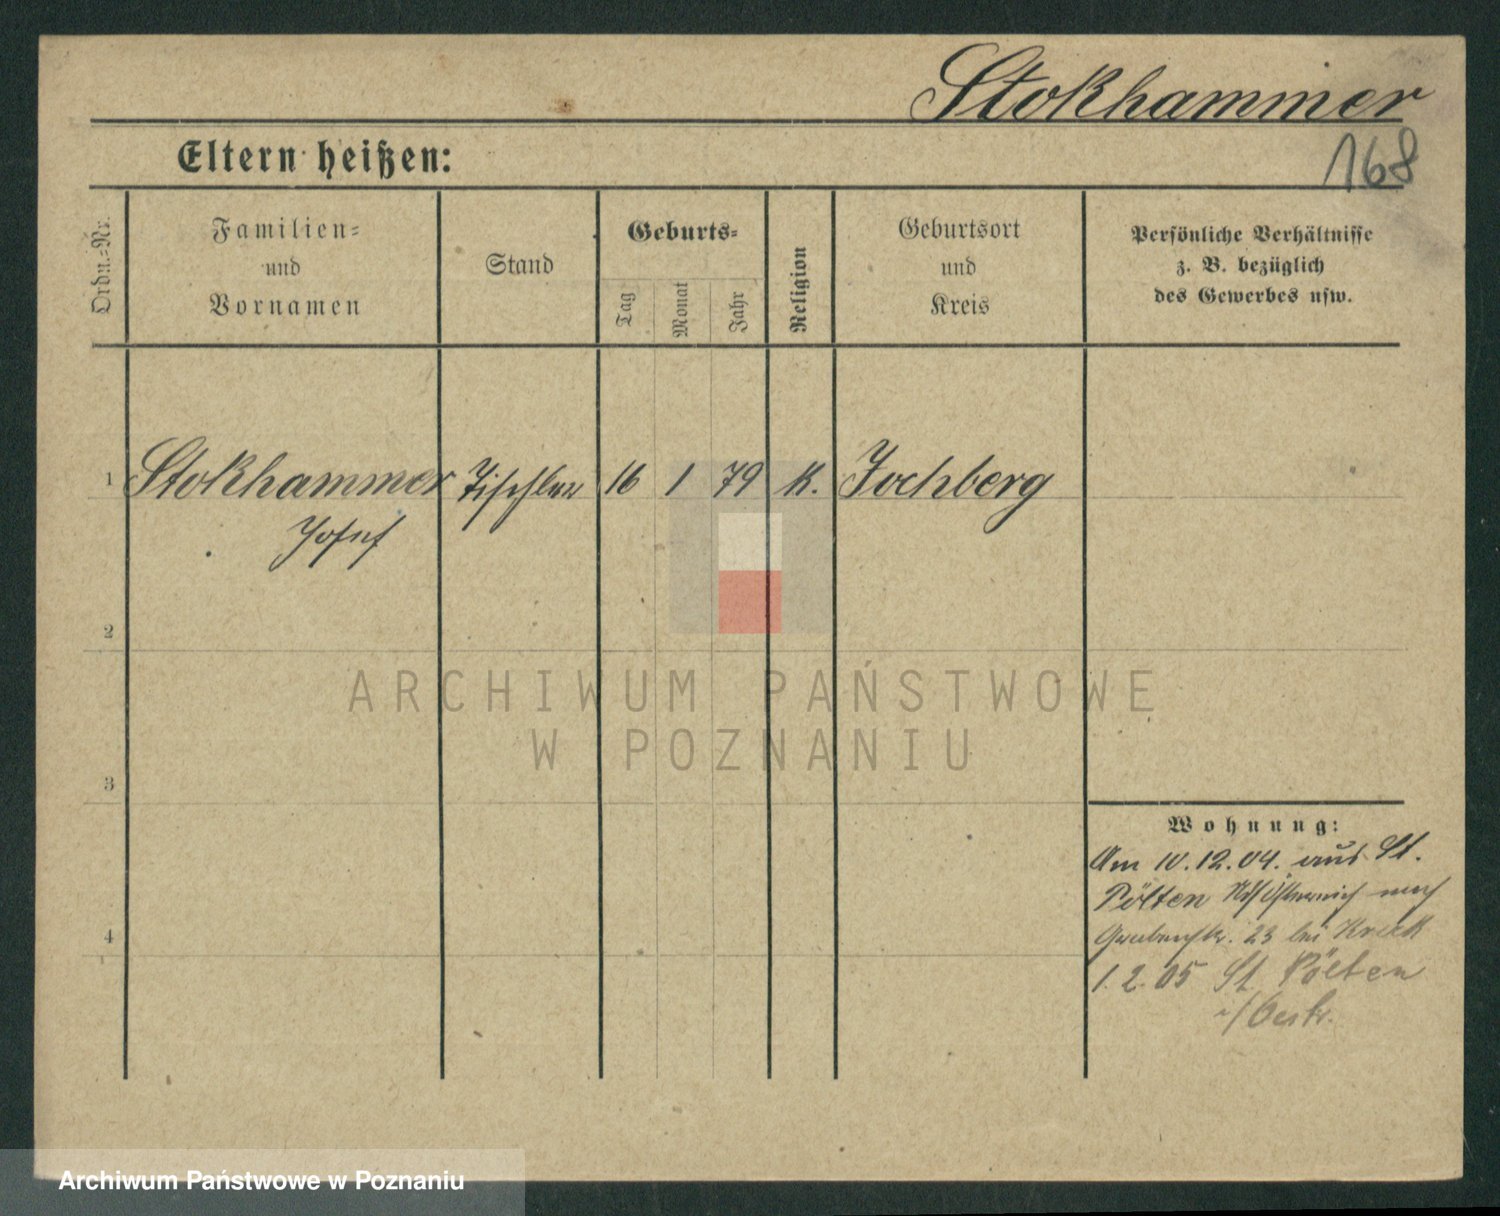 Stokhammer
168
Eltern heißen:
Ordn.-Nr.
Familien-
und
Vornamen
Stand
Geburts-
Tag
Monat
Jahr
Religion
Geburtsort
und
Kreis
Persönliche Verhältnisse
z. B. bezüglich
des Gewerbes usw.
1 Stokhammer Tischler 16 1 79 k. Jochberg
Josef
2
ARCHIWUM PAŃSTWOWE
W POZNANIU
3
Wohnung:
Am 10.12.04. aus St.
Pölten Österreich nach
4
Grabenstr. 23 bei
1.2.05 St. Pölten
i/Oestr.
Archiwum Państwowe w Poznaniu